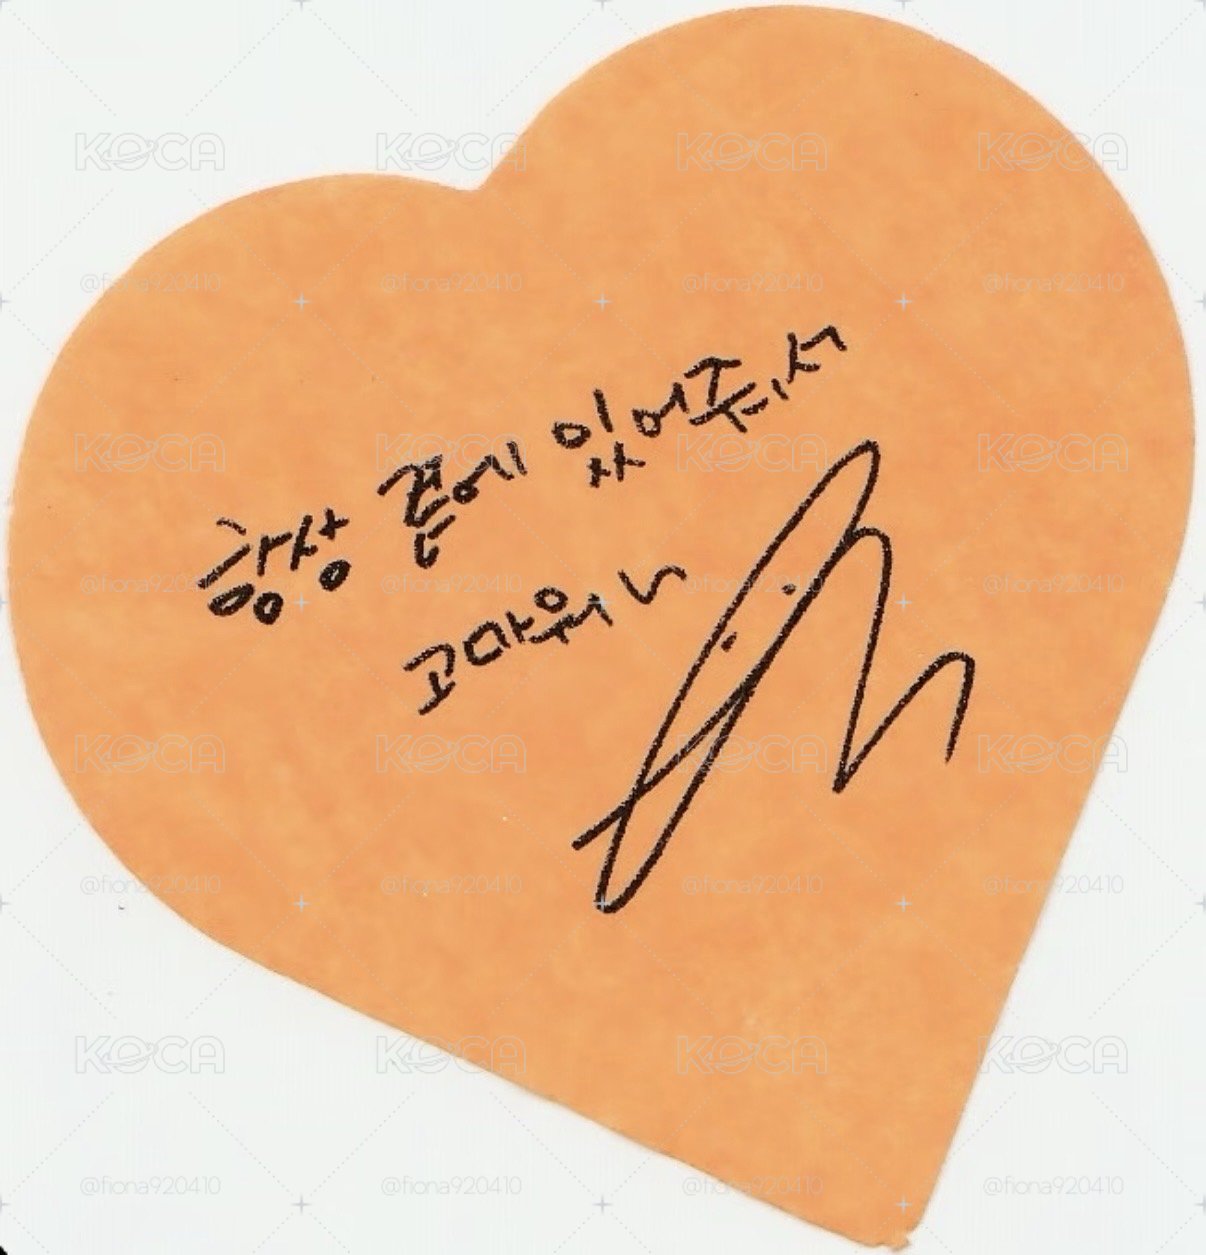 KOCA KOCA KOCA KOCA
@fiona920410 @fiona920410 @fiona920410 @fiona920410
항상 곁에 있어줘서
KOCA KOCA KOCA KOCA
고마워
@fiona920410 @fiona920410 @fiona920410 @fiona920410
KOCA KOCA KOCA KOCA
@fiona920410 @fiona920410 @fiona920410 @fiona920410
KOCA KOCA KOCA KOCA
@fiona920410 @fiona920410 @fiona920410 @fiona920410